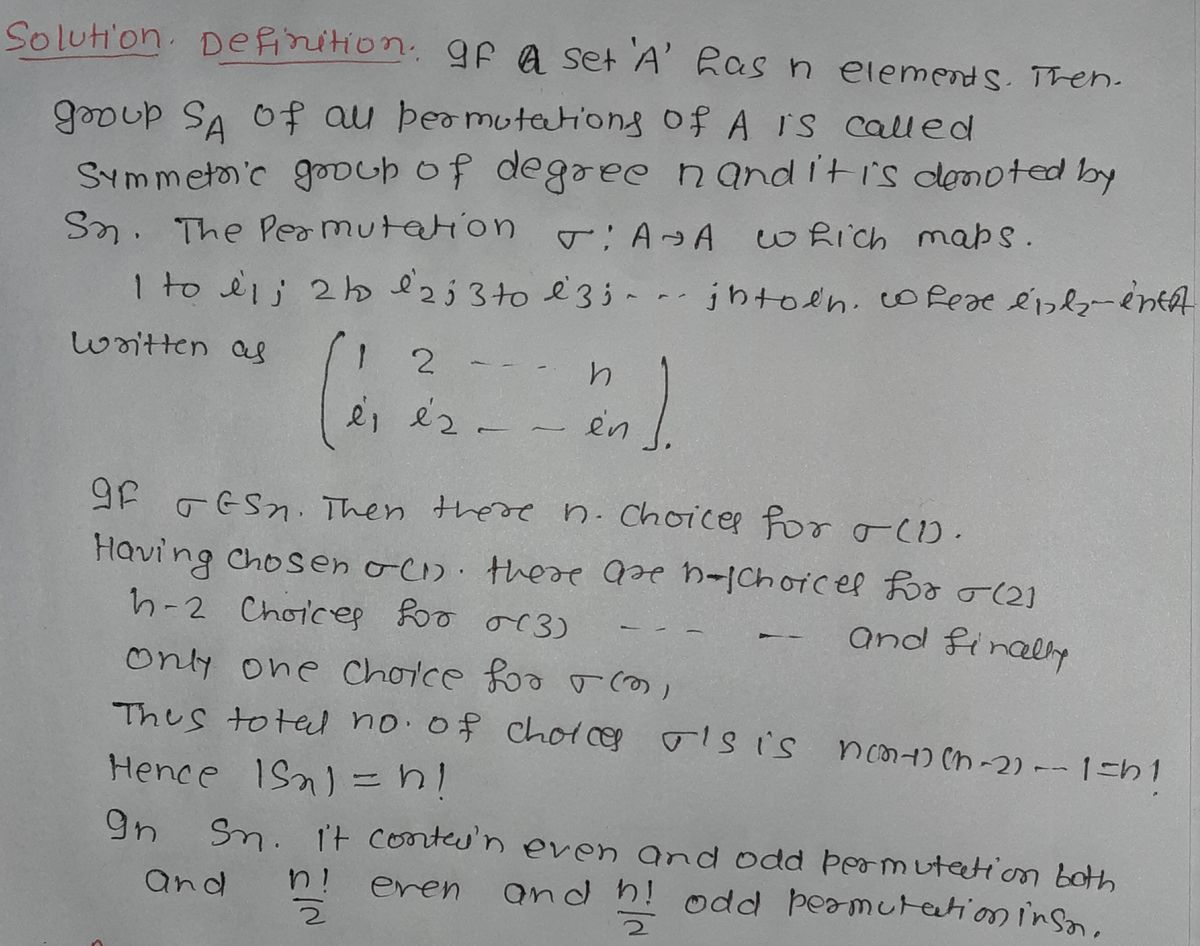 Solution. Definition. If a set 'A' has n elements. Then.
group S_A of all permutations of A is called
Symmetric group of degree n and it is denoted by
Sn. The Permutation σ: A→A which maps.
1 to i1; 2 to i2; 3 to i3; - - - ; n to in. where i1, i2 - in ∈ A
written as ( 1 2 - - - - n
i1 i2 - - in ).
If σ ∈ Sn. Then there n. choices for σ(1).
Having chosen σ(1). there are n-1 choices for σ(2)
n-2 Choices for σ(3) - - - -- and finally
only one choice for σ(n),
Thus total no. of choices σ's is n(n-1)(n-2) --- 1 = n!
Hence |Sn| = n!
In Sn. it contain even and odd permutation both
and n!/2 even and n!/2 odd permutation in Sn.